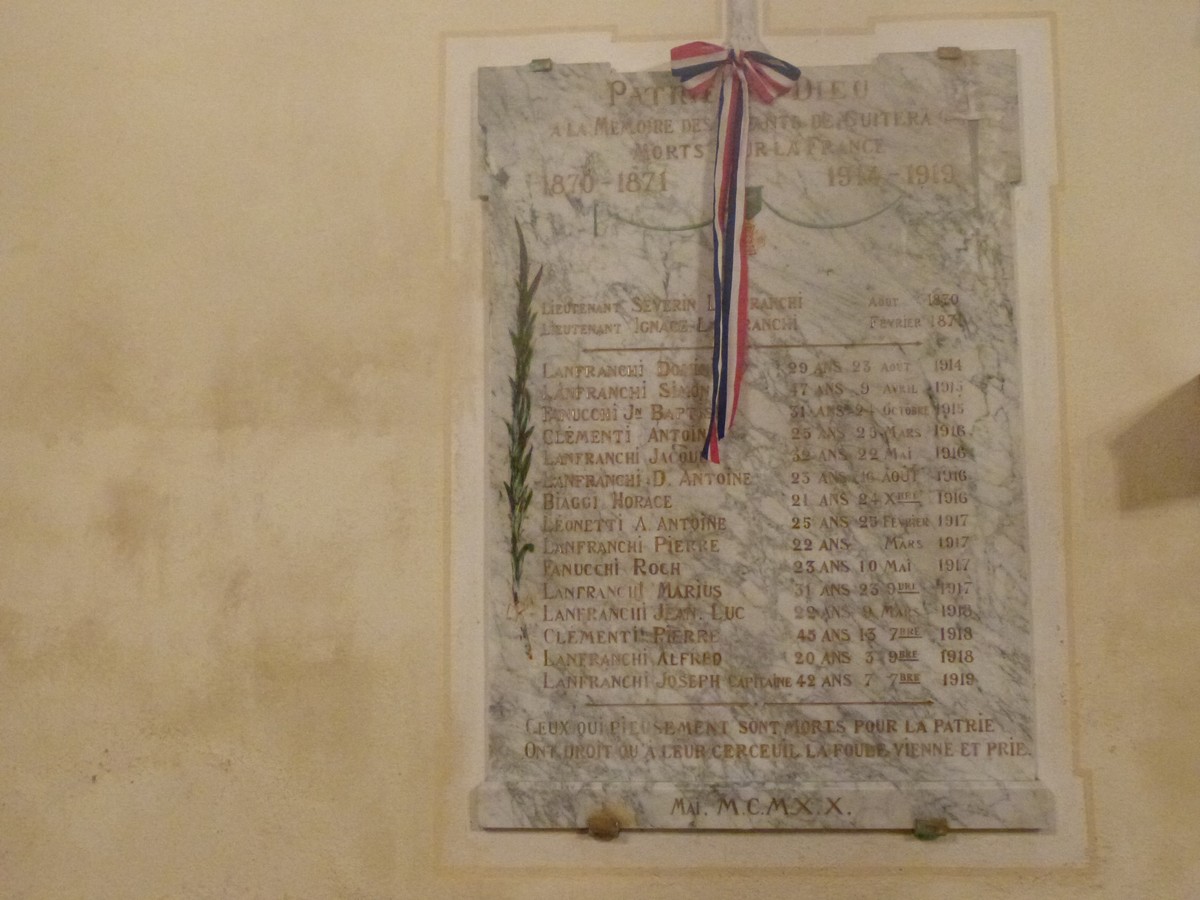 PATRIE DIEU
A LA MÉMOIRE DES DE GUITERA
MORTS LA FRANCE
1870-1871 1914-1919
LIEUTENANT SÉVERIN AOUT 1870
LIEUTENANT IGNACE FÉVRIER
LANFRANCHI 29 ANS 23 AOUT 1914
LANFRANCHI SIMON 47 ANS 9 AVRIL 1915
FANUCCHI JN 31 ANS OCTOBRE 1915
CLÉMENTI 25 ANS 25 MARS 1916
LANFRANCHI 32 ANS 22 MAI 1916
LANFRANCHI D. ANTOINE 23 ANS 16 AOUT 1916
BIAGGI HORACE 21 ANS 24 XBRE 1916
LÉONETTI A. ANTOINE 25 ANS 25 FÉVRIER 1917
LANFRANCHI PIERRE 22 ANS MARS 1917
FANUCCHI ROCH 23 ANS 10 MAI 1917
LANFRANCHI MARIUS 31 ANS 23 9BRE 1917
LANFRANCHI JEAN. LUC 22 ANS 9 MARS 1918
CLÉMENTI PIERRE 45 ANS 13 7BRE 1918
LANFRANCHI ALFRED 20 ANS 3 9BRE 1918
LANFRANCHI JOSEPH CAPITAINE 42 ANS 7 7BRE 1919
CEUX QUI PIEUSEMENT SONT MORTS POUR LA PATRIE
ONT DROIT QU'A LEUR CERCEUIL LA FOULE VIENNE ET PRIE.
MAI. M.C.M.X.X.